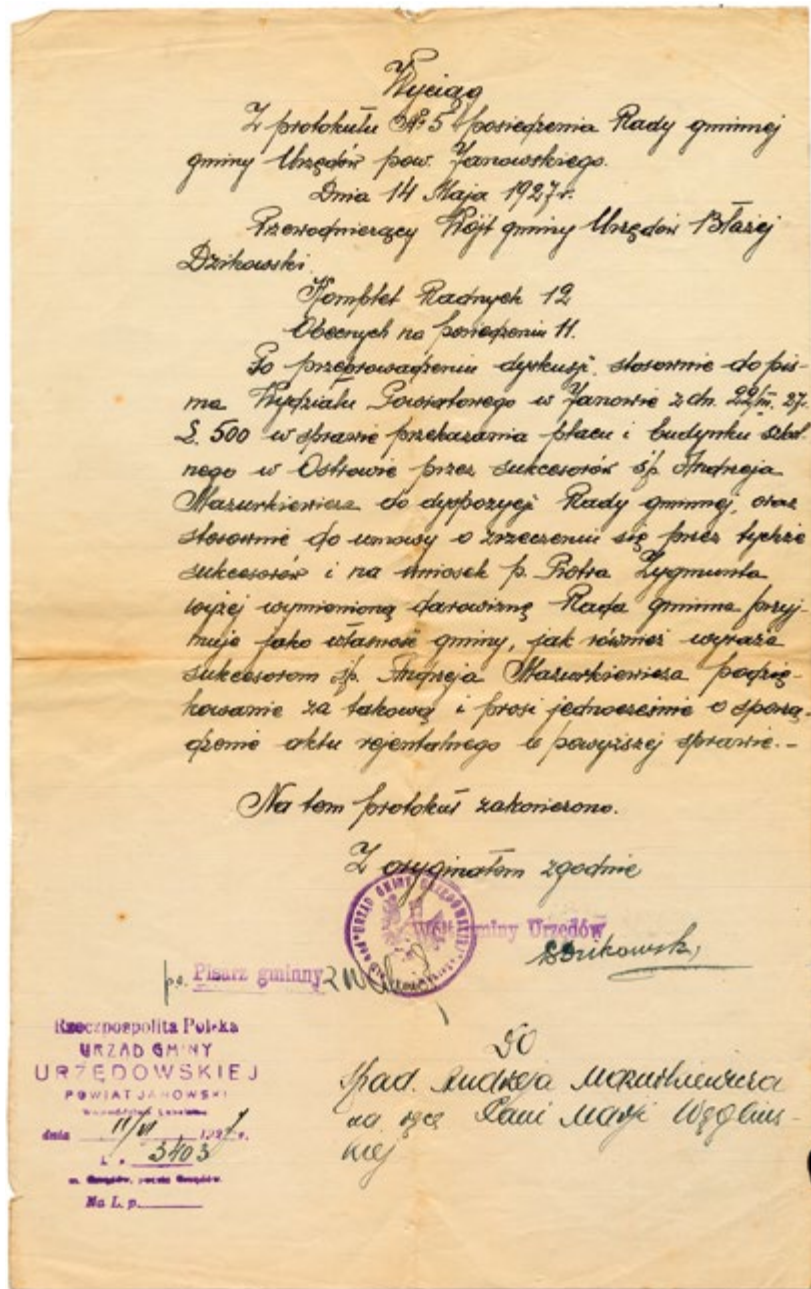 Wyciąg
Z protokułu № 5 posiedzenia Rady gminnej
gminy Urzędów pow. Janowskiego.
Dnia 14 Maja 1927 r.
Przewodniczący Wójt gminy Urzędów Błażej
Dzikowski
Komplet Radnych 12
Obecnych na posiedzeniu 11.
Po przeprowadzeniu dyskusji, stosownie do pis-
ma Wydziału Powiatowego w Janowie z dn. 22/III. 27.
L. 500 w sprawie przekazania placu i budynku szkol-
nego w Ostrowie przez sukcesorów ś.p. Andrzeja
Mazurkiewicza do dyspozycji Rady gminnej, oraz
stosownie do umowy o zrzeczeniu się przez tychże
sukcesorów i na wniosek p. Piotra Zygmunta
wyżej wymienioną darowiznę Rada gminna przyj-
muje jako własność gminy, jak również wyraża
sukcesorom ś.p. Andrzeja Mazurkiewicza podzię-
kowanie za takową i prosi jednocześnie o sporzą-
dzenie aktu rejentalnego w powyższej sprawie.-
Na tem protokuł zakończono.
Z oryginałem zgodnie
URZĄD GMINY URZĘDOWSKIEJ
Wójt gminy Urzędów
Dzikowski
Pisarz gminny
Rzeczpospolita Polska
URZĄD GMINY
URZĘDOWSKIEJ
POWIAT JANOWSKI
dnia 11/VI 1927 r.
L. 3403
Na L. p.
Do
Spad. Andrzeja Mazurkiewicza
na ręce Pani Marji Węglińs-
kiej